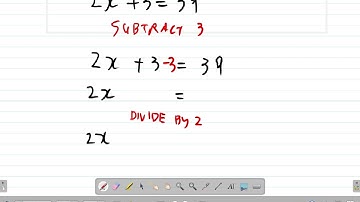 2x + 3 = 39
SUBTRACT 3
2x + 3 -3 = 39
2x =
DIVIDE By 2
2x